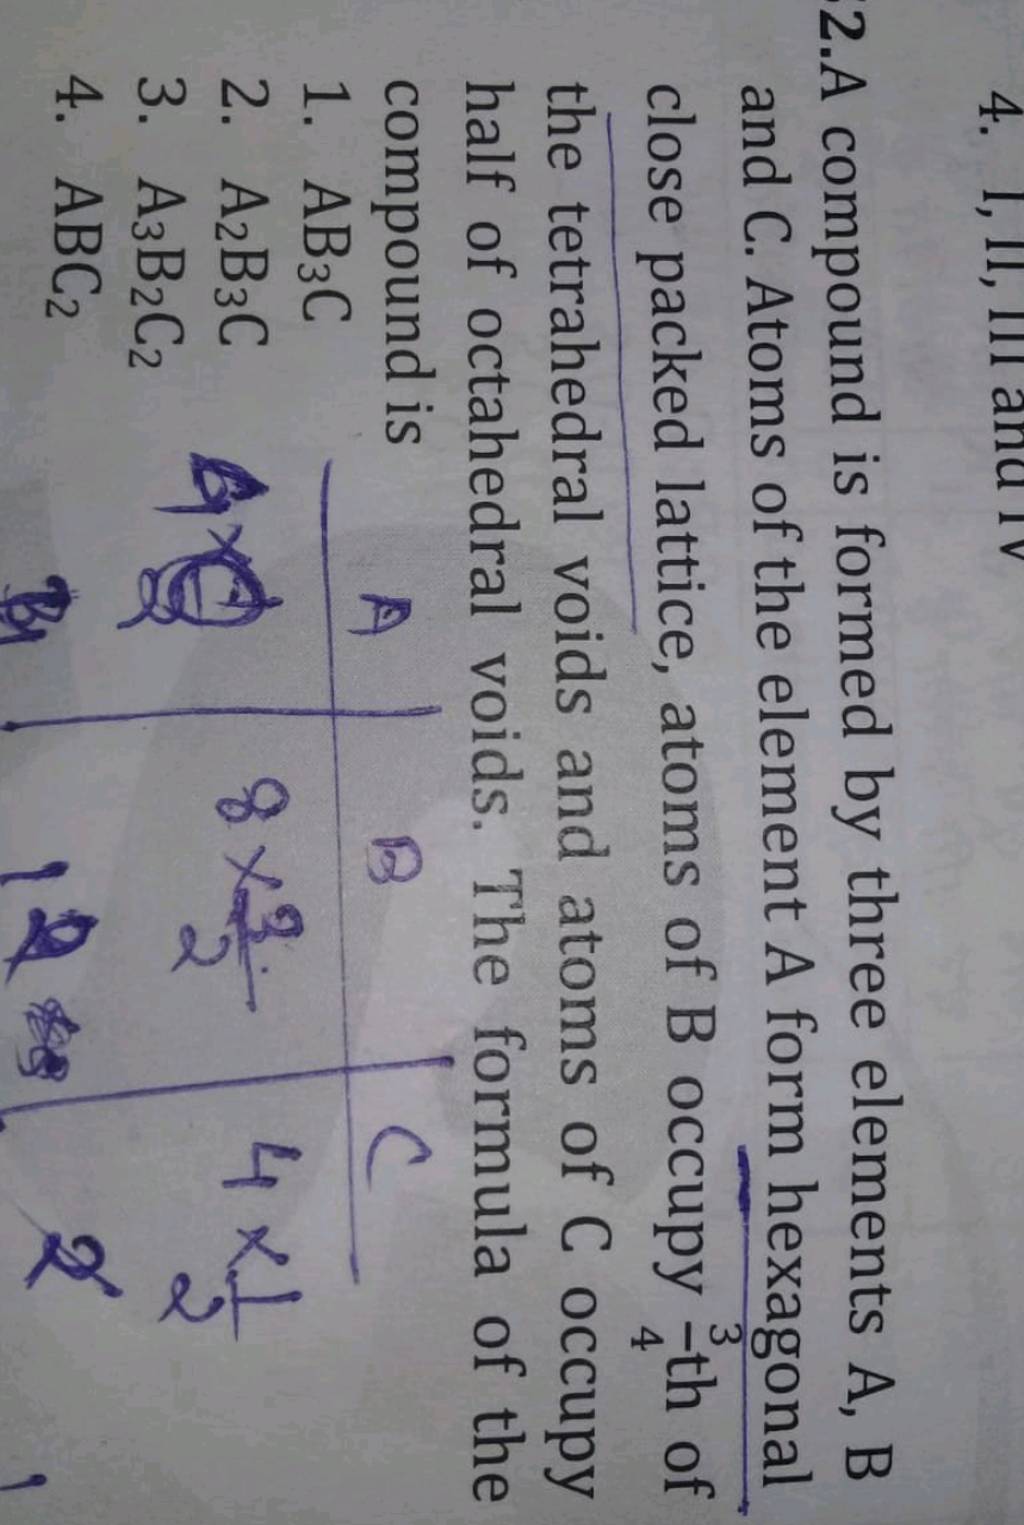 4. I, II, III and IV
2. A compound is formed by three elements A, B
and C. Atoms of the element A form hexagonal
close packed lattice, atoms of B occupy 3/4 th of
the tetrahedral voids and atoms of C occupy
half of octahedral voids. The formula of the
compound is
1. AB₃C
2. A₂B₃C
3. A₃B₂C₂
4. ABC₂
A B C
8 × 4 × 1/2
2